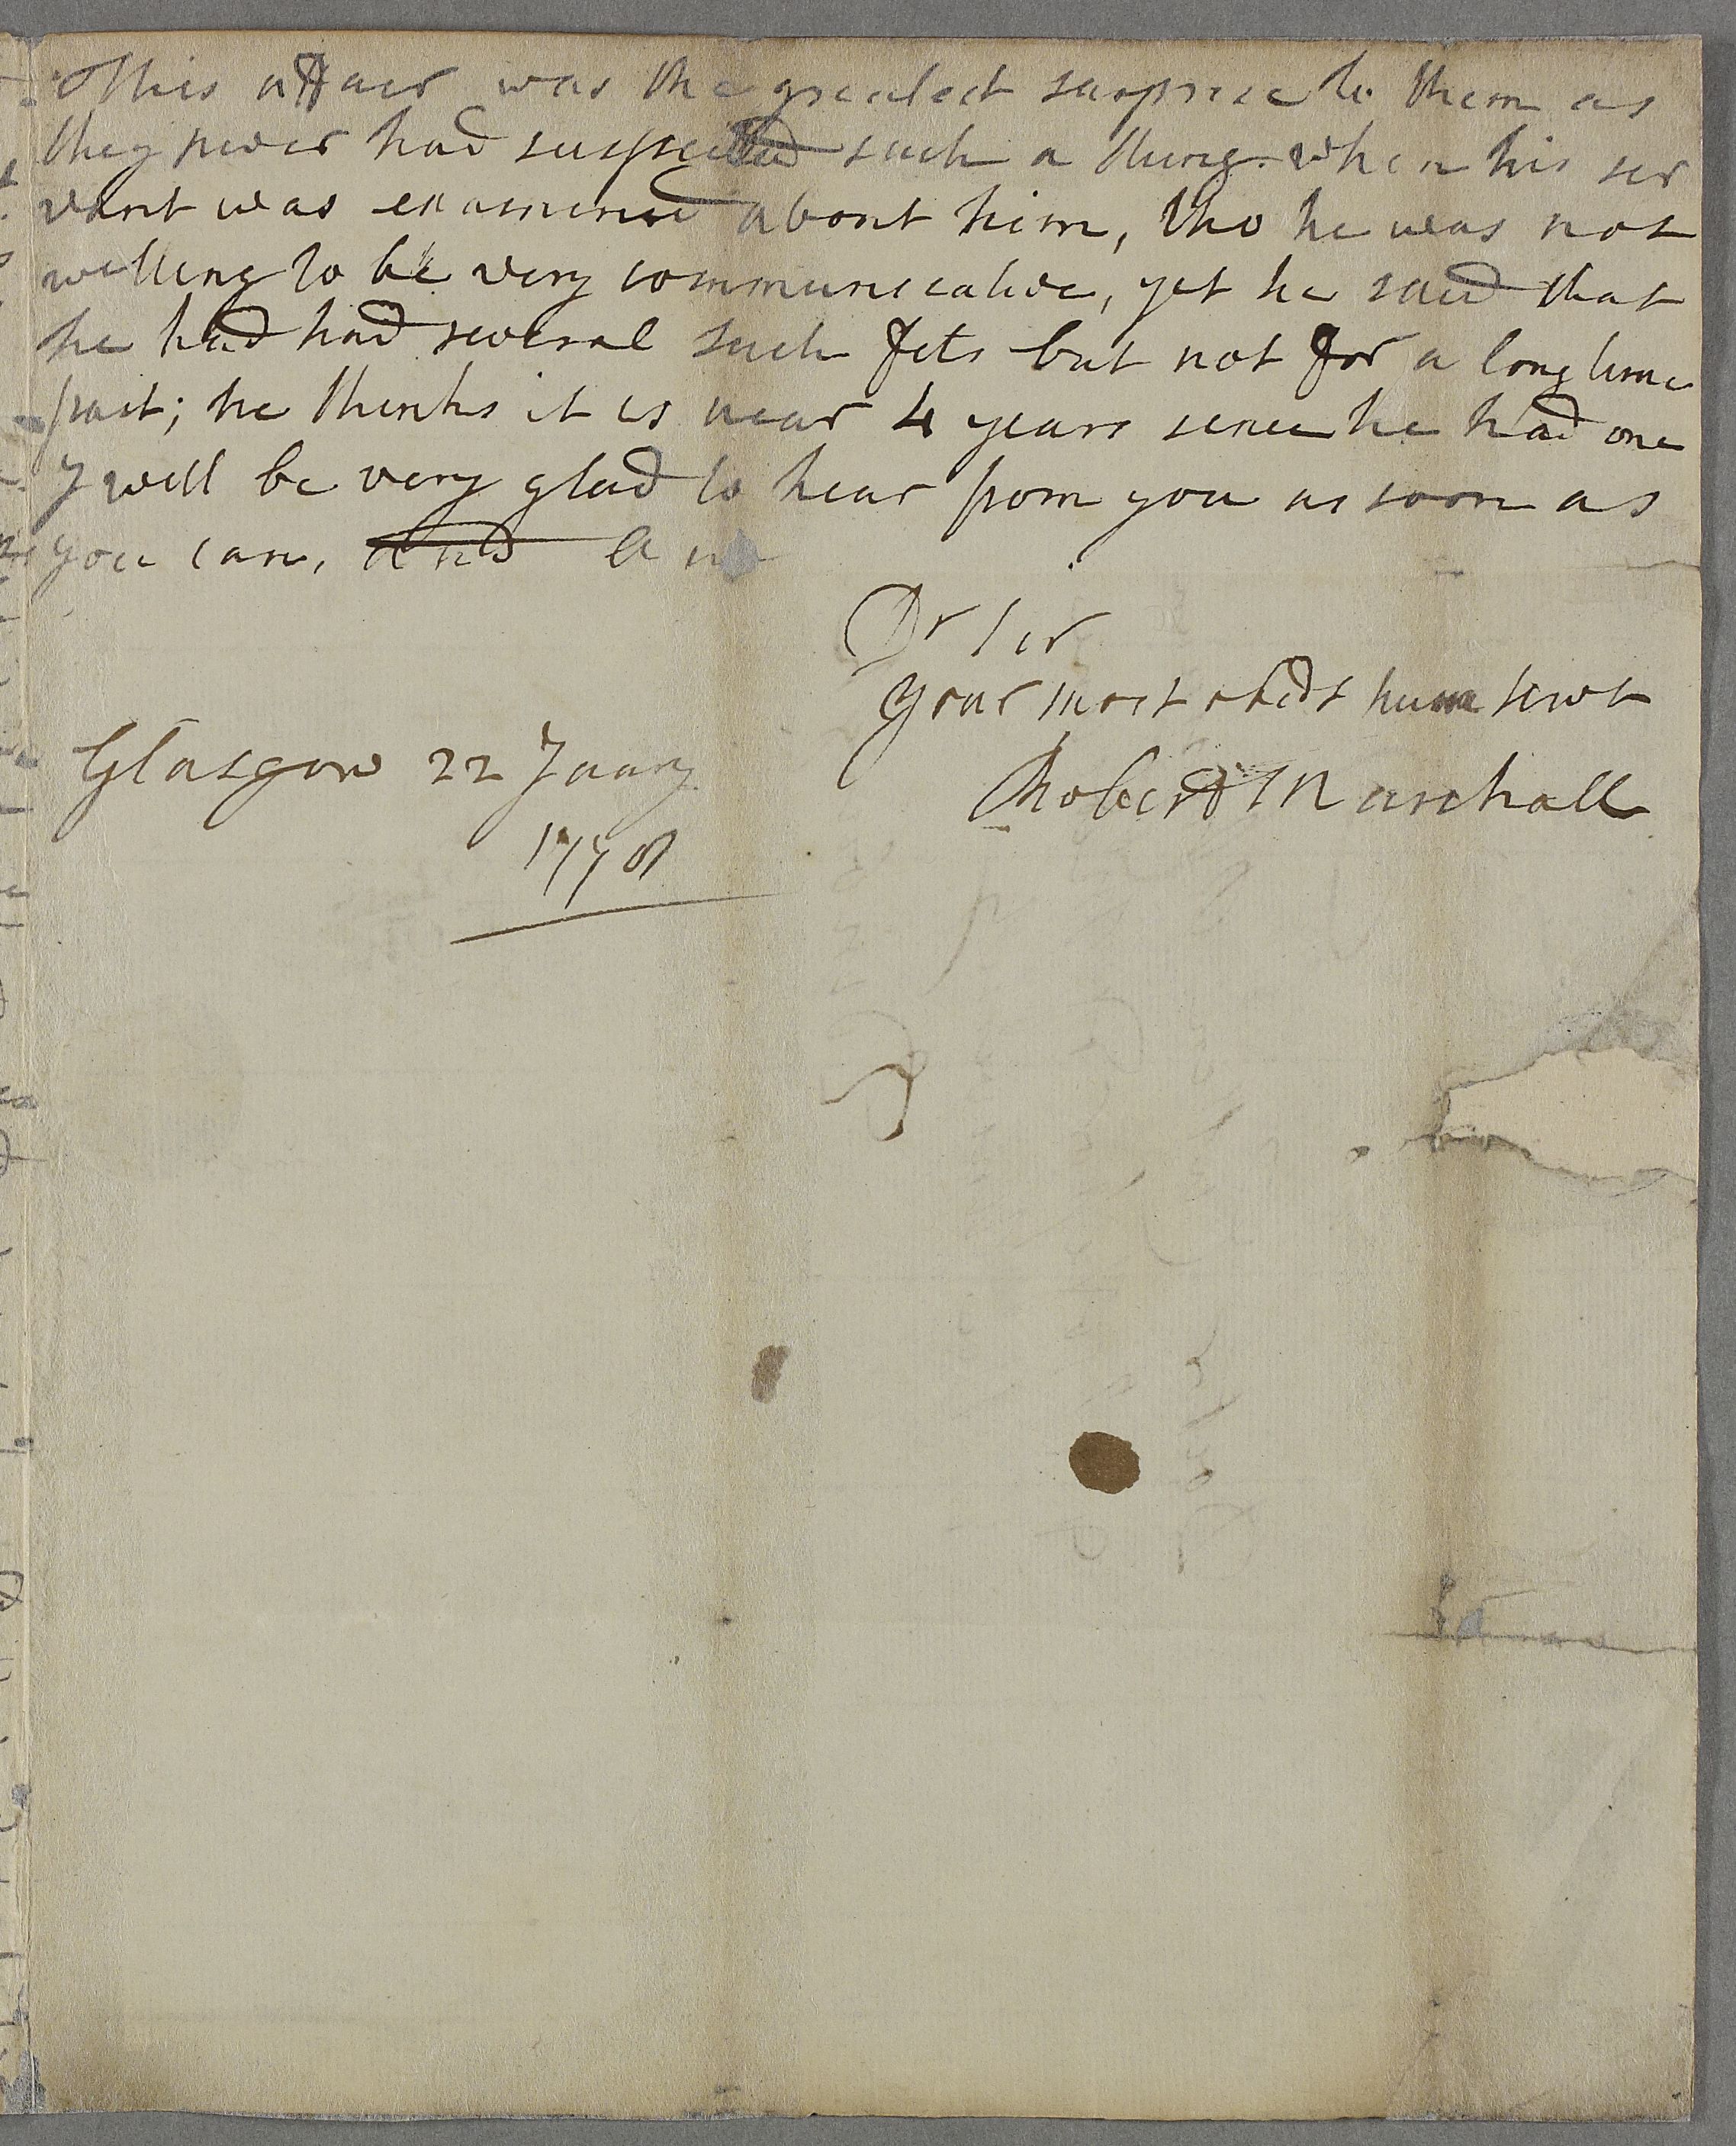 This affair was the greatest surprise to them as
they never had suspected such a thing. when his ser
vant was examined about him, tho he was not
willing to be very communicative, yet he said that
he had had several such fits but not for a long time
past; he thinks it is near 4 years since he had one
I will be very glad to hear from you as soon as
you can, and am
Dr Sir
your most obedt hum servt
Glasgow 22 Jaary
Robert Marshall